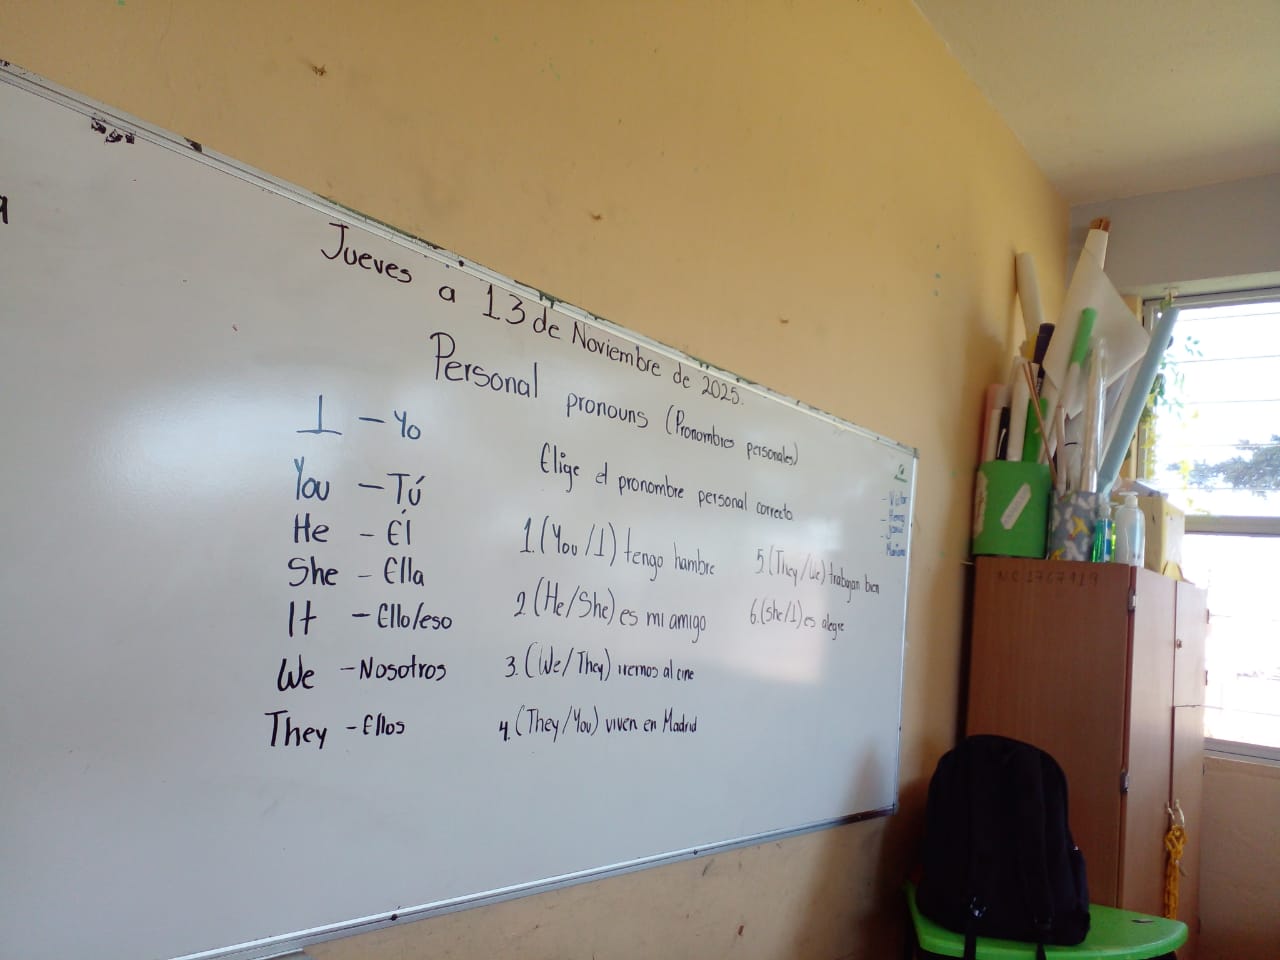 Jueves a 13 de Noviembre de 2025.
Personal pronouns (Pronombres personales)
I - Yo
You - Tú
He - Él
She - Ella
It - Ello/eso
We - Nosotros
They - Ellos
Elige el pronombre personal correcto.
1. (You/I) tengo hambre
2. (He/She) es mi amigo
3. (We/They) iremos al cine
4. (They/You) viven en Madrid
5. (They/We) trabajan bien
6. (She/I) es alegre